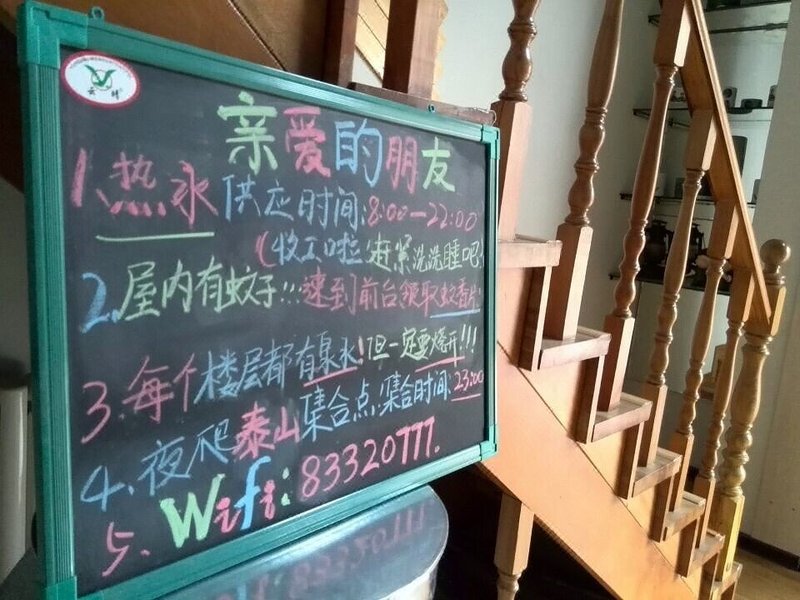 亲爱的朋友
1、热水供应时间:8:00—22:00
(收工啦!赶紧洗洗睡吧!
2、屋内有蚊子!!!速到前台领取蚊香片!
3、每个楼层都有泉水!但一定要烧开!!!
4、夜爬泰山集合点,集合时间:23:00
5、Wifi:83320777.